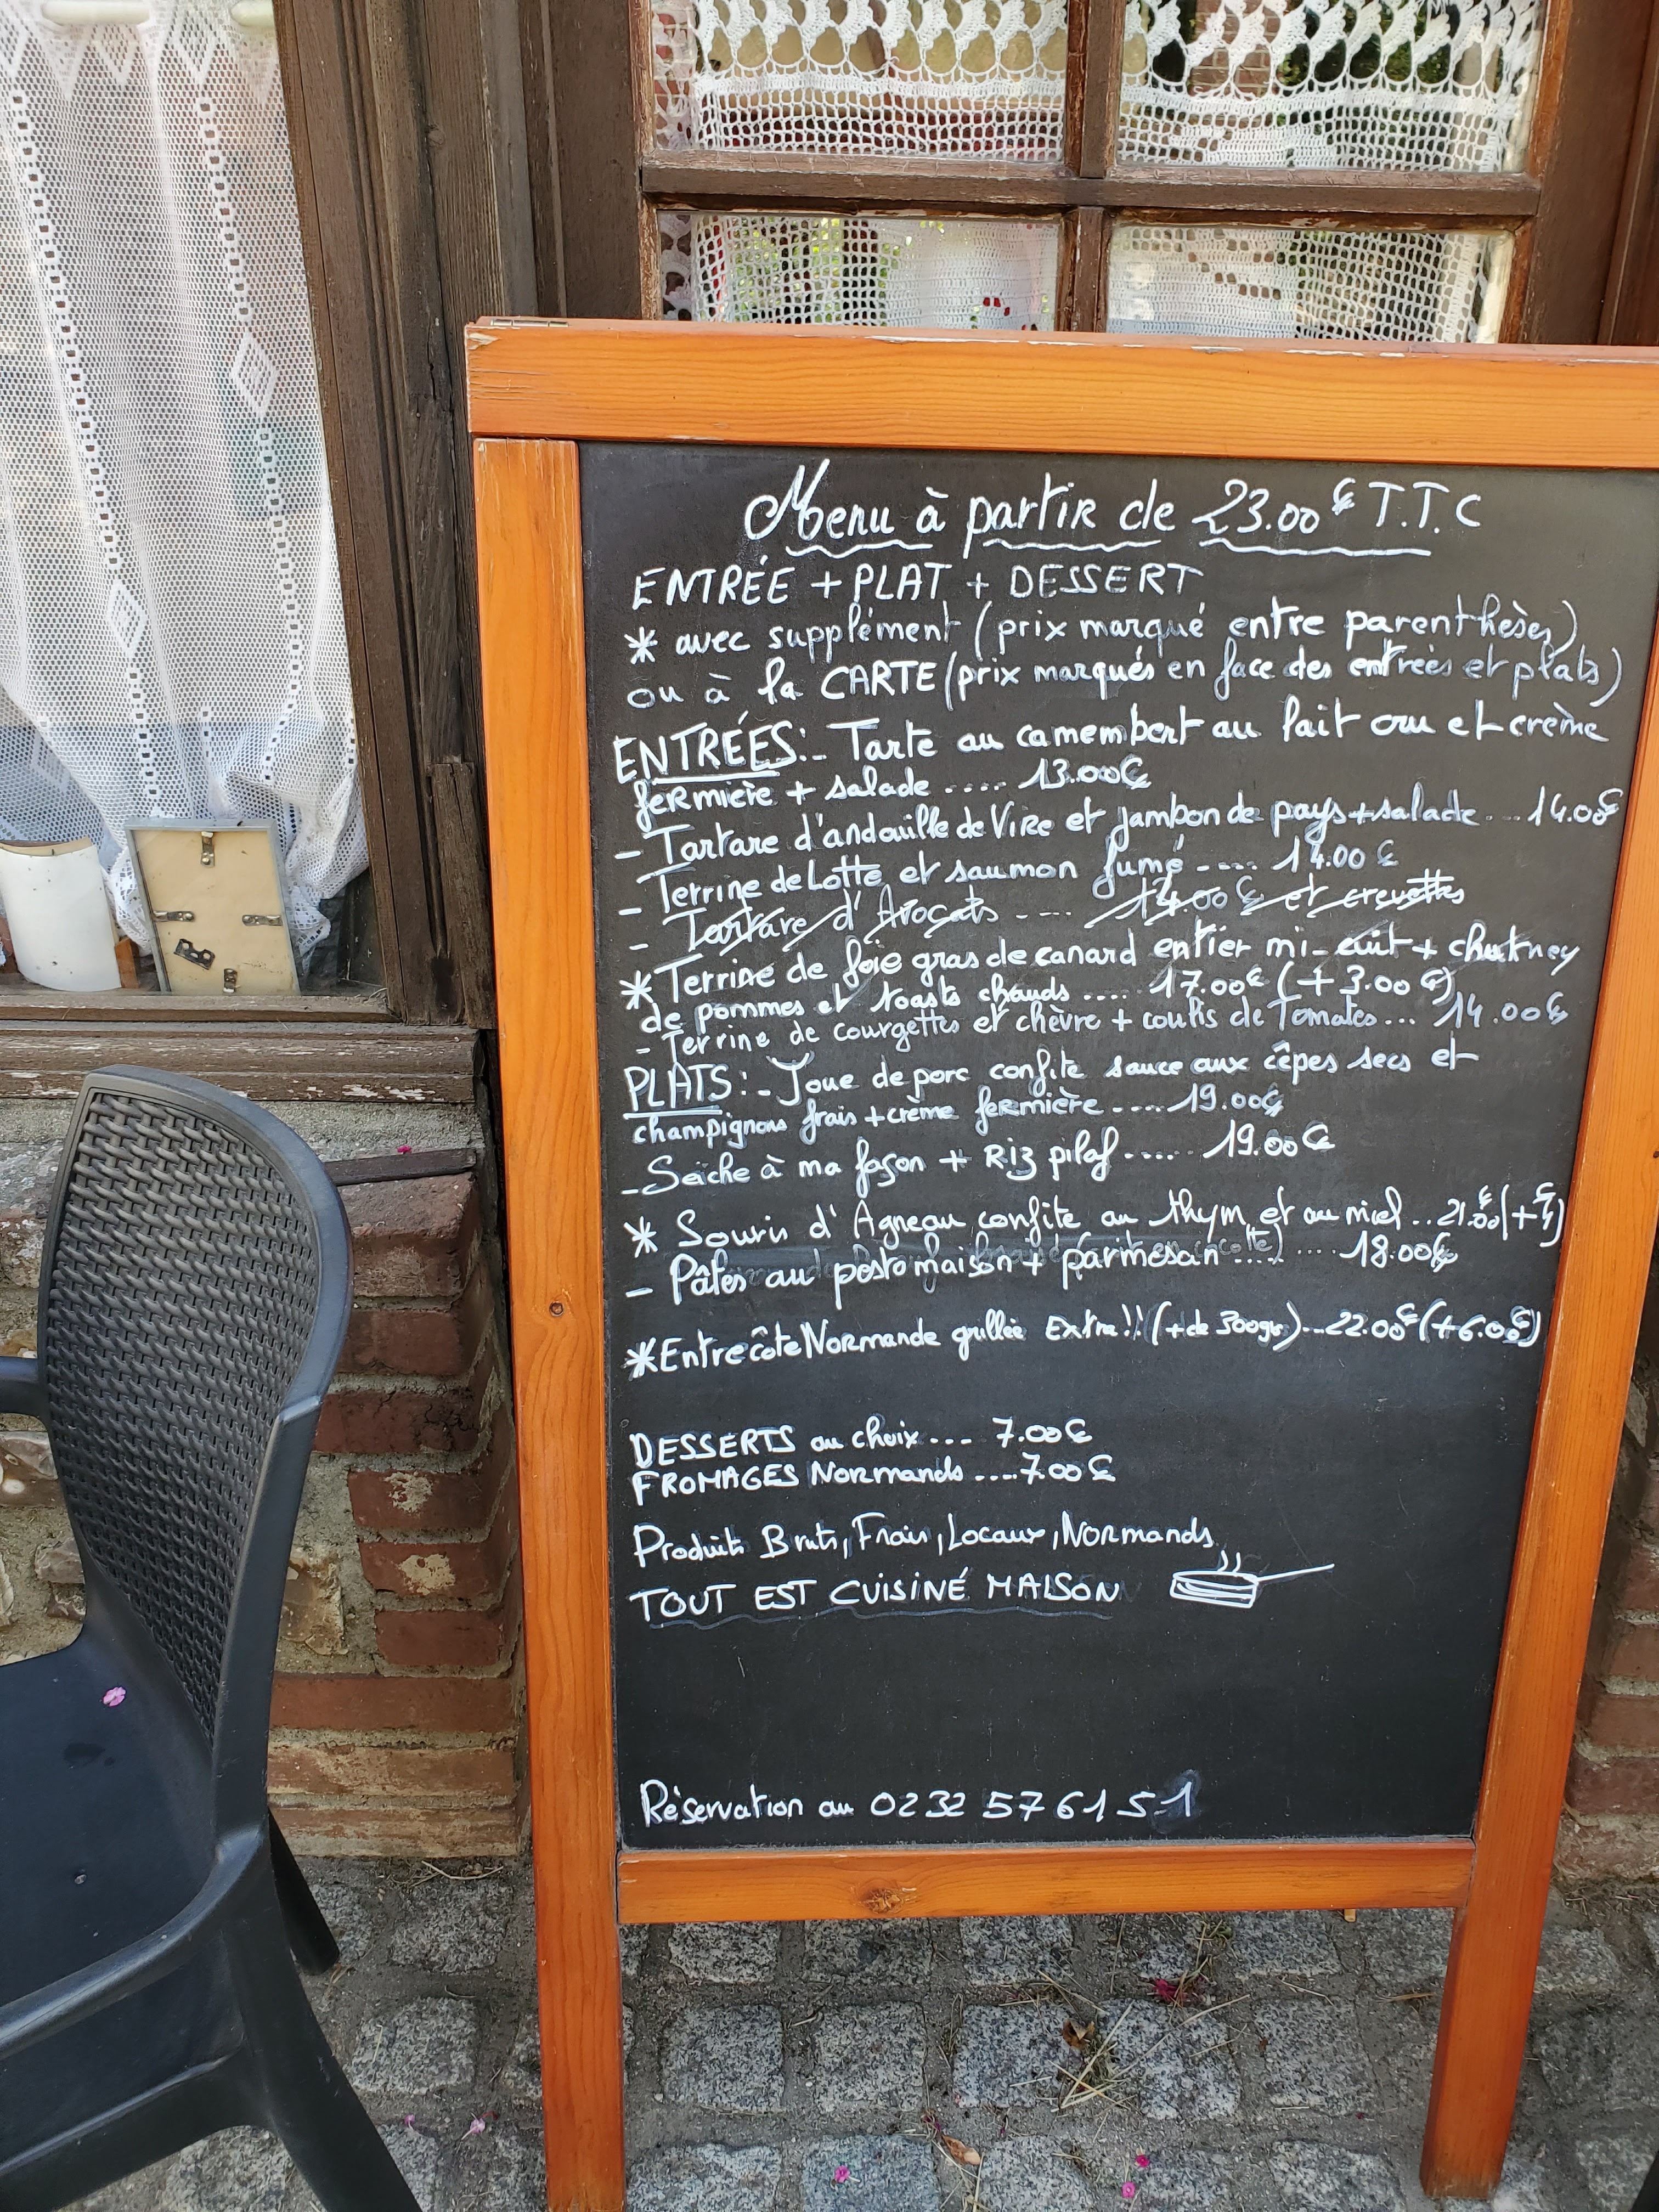 Menu à partir de 23.00€ T.T.C
ENTRÉE + PLAT + DESSERT
* avec supplément (prix marqué entre parenthèses)
ou à la CARTE (prix marqués en face des entrées et plats)
ENTRÉES:- Tarte au camembert au lait cru et crème
fermière + salade .... 13.00€
- Tartare d'andouille de Vire et jambon de pays + salade ... 14.00€
- Terrine de Lotte et saumon fumé .... 14.00€
- Tartare d'Avocats .... 14.00€ et crevettes
* Terrine de foie gras de canard entier mi-cuit + chutney
de pommes et toasts chauds .... 17.00€ (+3.00€)
- Terrine de courgettes et chèvre + coulis de Tomates ... 14.00€
PLATS:- Joue de porc confite sauce aux cêpes secs et
champignons frais + crème fermière .... 19.00€
- Seiche à ma façon + Riz pilaf ..... 19.00€
* Souris d'Agneau confite au thym et au miel .. 21.00€ (+
- Pâtes au pesto maison + parmesan .... 18.00€
* Entrecôte Normande grillée Extra!! (+ de 300gr) ... 22.00€ (+6.00€)
DESSERTS au choix ... 7.00€
FROMAGES Normands .... 7.00€
Produits Bruts, Frais, Locaux, Normands.
TOUT EST CUISINÉ MAISON
Réservation au 02 32 57 61 51